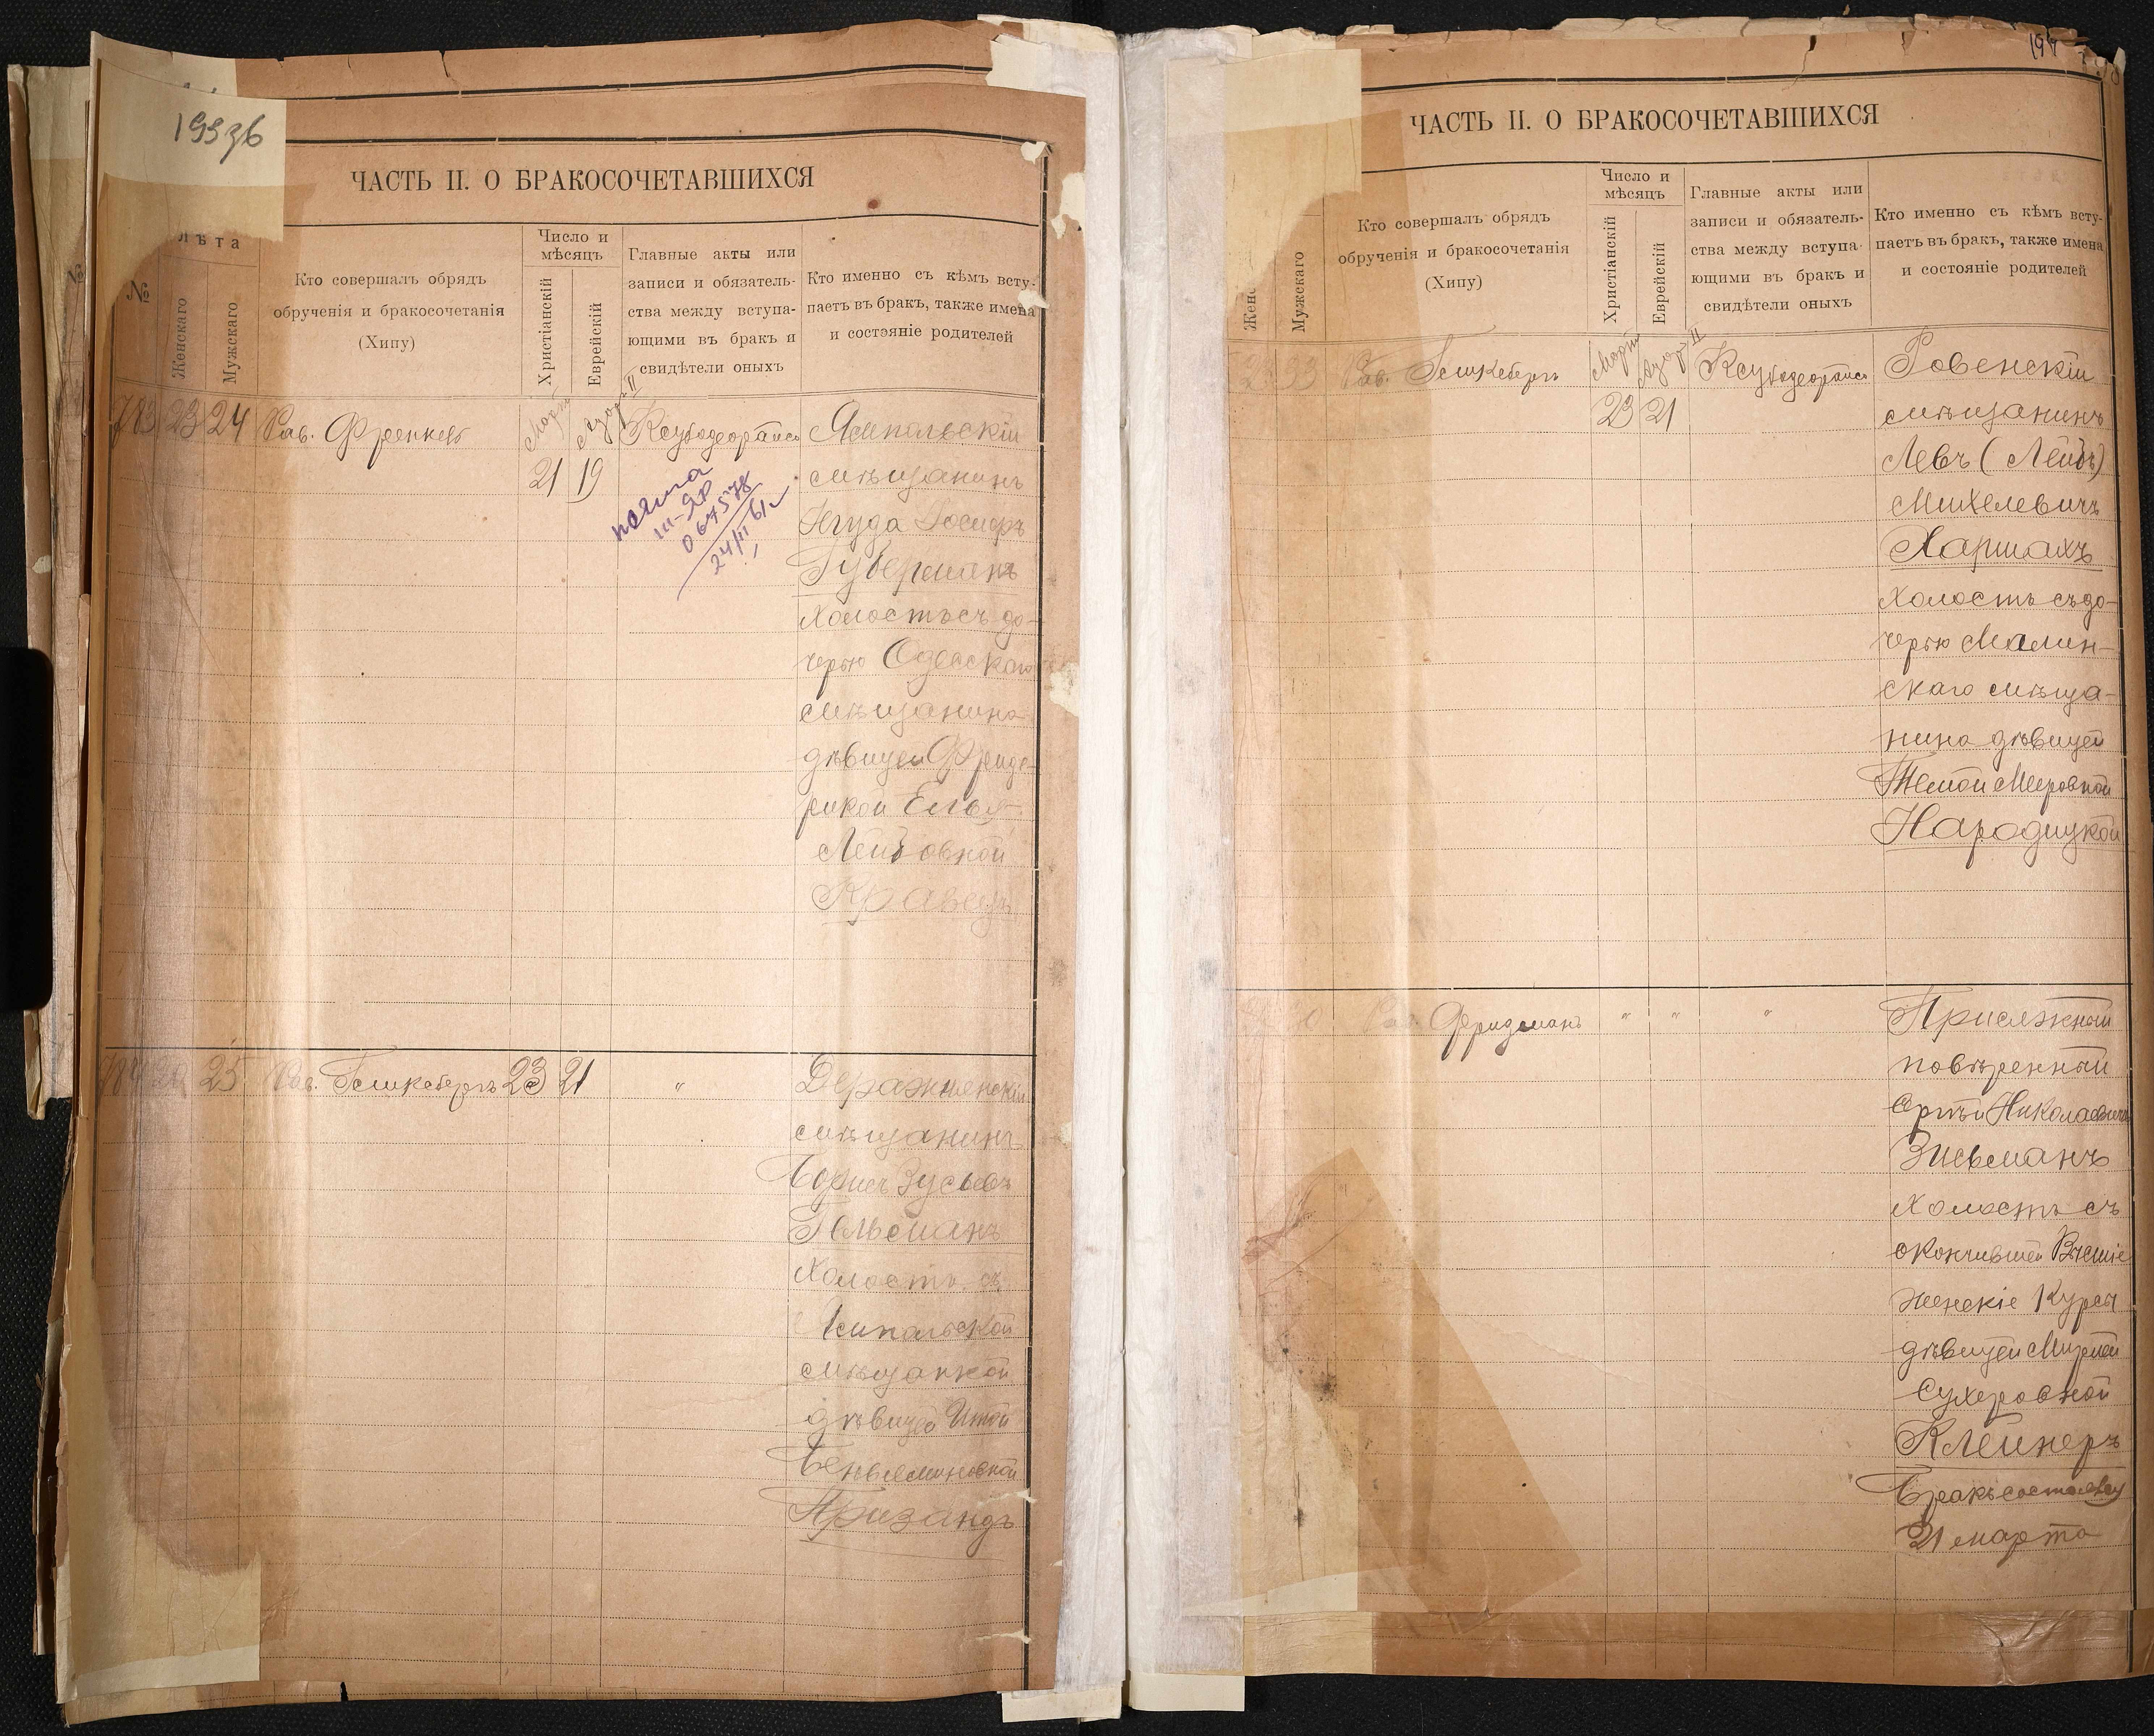 199зб
ЧАСТЬ II. О БРАКОСОЧЕТАВШИХСЯ
№
Лѣта
Женскаго
Мужскаго
Кто совершалъ обрядъ
обрученія и бракосочетанія
(Хипу)
Число и
мѣсяцъ
Христіанскій
Еврейскій
Главные акты или
записи и обязатель-
ства между вступа-
ющими въ бракъ и
свидѣтели оныхъ
Кто именно съ кѣмъ всту-
паетъ въ бракъ, также имена
и состояніе родителей
783 23 24 Рав. Френкель
Мартъ Адаръ II
21 19
Ямпольскій
мѣщанинъ
Іегуда
Губерманъ
холостъ съ до-
черью Одесскаго
мѣщанина
дѣвицей Фриде-
рикой
Лейбовной
Кравецъ
24/II 61
784 25 Рав. 23 21 "
Деражнянскій
мѣщанинъ
Борисъ Зусьевъ
Гельманъ
Холостъ съ
Ямпольской
мѣщанкой
дѣвицей Итой
Беньяминовной
197
ЧАСТЬ II. О БРАКОСОЧЕТАВШИХСЯ
Мужскаго
Кто совершалъ обрядъ
обрученія и бракосочетанія
(Хипу)
Число и
мѣсяцъ
Христіанскій
Еврейскій
Главные акты или
записи и обязатель-
ства между вступа-
ющими въ бракъ и
свидѣтели оныхъ
Кто именно съ кѣмъ всту-
паетъ въ бракъ, также имена
и состояніе родителей
Рав.
Мартъ Адаръ II
23 21
Ровенскій
мѣщанинъ
Левъ (Лейбъ)
Михелевичъ
Харшахъ
Холостъ съ до-
черью Малин-
скаго мѣща-
нина дѣвицей
Меировной
Народицкой
Рав. Фридманъ " " "
Присяжный
повѣренный
Николаевичъ
Зисьманъ
Холостъ съ
окончившей Высшіе
Женскіе Курсы
дѣвицей
Сухеровной
Клейнеръ
Бракъ состоялся
21 марта